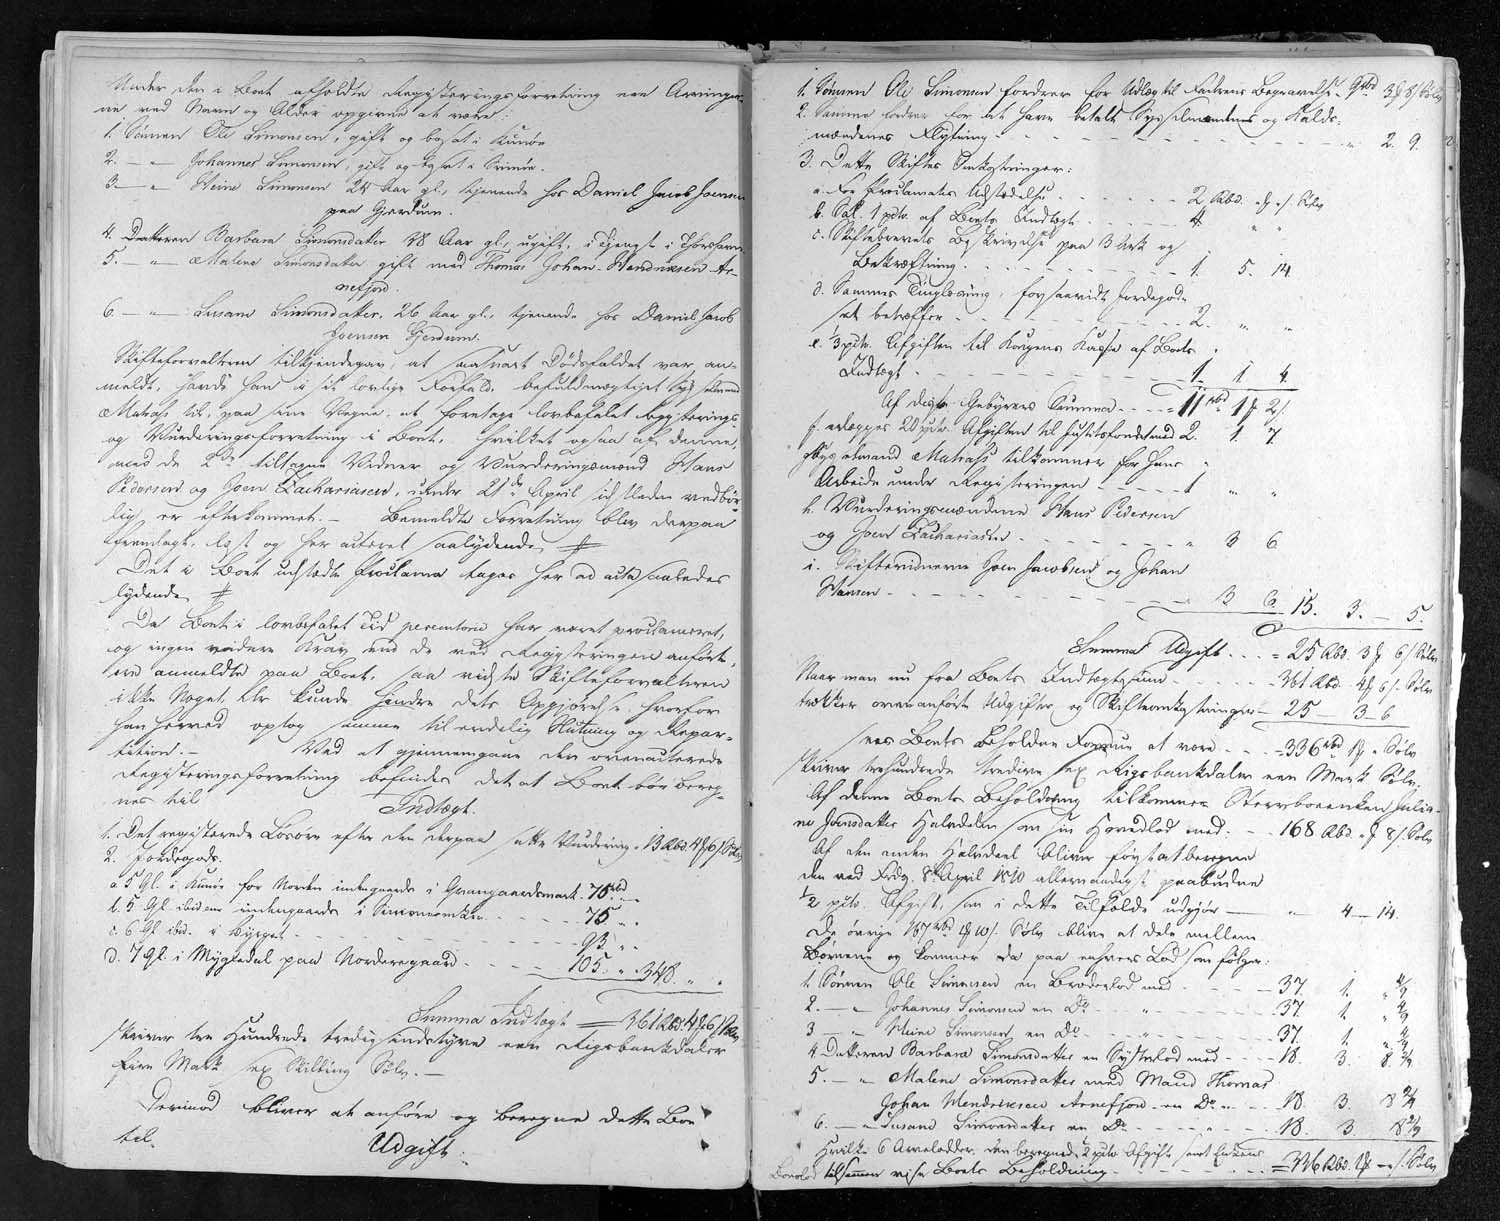 Under den i Boet afholdte Registeringsforretning ere Arvinger-
ne ved Navn og Alder opgivne at være:
1. Sønnen Ole Simonsen, gift og bosat i Kunøe
2. — „ — Johannes Simonsen, gift og bosat i
3. — „ Meine Simonsen 24 Aar gl., tjenende hos Daniel Jacob Joensen
paa Gjerdum.
4. Datteren Barbara Simonsdatter 48 Aar gl., ugift, i Tjeneste i Thorshavn
5. — „ — Malene Simonsdatter gift med Thomas Johan Mendriksen Ar-
nefjord.
6. — „ — Susane Simonsdatter, 26 Aar gl., tjenende hos Daniel Jacob
Joensen Gjerdum.
Skifteforvalteren tilkjendegav, at saasnart Dødsfaldet var an-
meldt, havde han i sit lovlige Forfald, befuldmægtiget Sysselmand
Matrass til, paa sine Vegne at foretage lovbefalet Registerings-
og Vurderingsforretning i Boet, hvilket ogsaa af denne,
med de 2de tiltagne Vidner og Vurderingsmænd Hans
Pedersen og Joen Zachariasen, under 21de April sidstleden vedbør-
lig er efterkommet. — Bemeldte Forretning blev derpaa
fremlagt, læst og her acteret saalydende
Det i Boet udstedte Proclama tages her ad acta saaledes
lydende
Da Boet i lovbefalet Tid peremtorie har været proclameret,
og ingen videre Krav end de ved Registeringen anførte,
ere anmeldte paa Boet, saa vidste Skifteforvalteren
ikke Noget, der kunde hindre dets Opgjørelse, hvorfor
han herved optog samme til endelig Slutning og Repar-
tition. — Ved at gjennemgaae den ovenacterede
Registeringsforretning befindes det at Boet bør bereg-
nes til
Indtægt.
1. Det registerede Løsøre efter den derpaa satte Vurdering 13 Rbd. 4 ₰ 6 s. Sølv
2. Jordegods.
a. 5 Gl. i Kunøe for Norden indengaards i 75 rbd „ „
b. 5 Gl. ibidem indengaards i 75 „ „
c. 6 Gl. ibid. i Bygget 93 „ „
d. 7 Gl. i Mygledal paa Nordregaard 105. „ „ 348. „ „
Summa Indtægt = 361 Rbd. 4 ₰ 6 s. Sølv
skriver tre Hundrede tredsindstyve een Rigsbankdaler
fire Mark sex Skilling Sølv. —
Derimod bliver at anføre og beregne dette Boe
til.
Udgift:
1. Sønnen Ole Simonsen fordrer for Udlæg til Faderens Begravelse 9 rbd 3 ₰ 8 s. Sølv
2. Samme fordrer for at have betalt Sysselmandens og Kalds-
mændenes Flytning „ 2. 9.
3. Dette Skiftes Omkostninger:
a. for Proclamatets Udstedelse 2 Rbd. „ ₰ „ s. Sølv
b. Sal. 1 pcto. af Boets Indtægt 4 „ „
c. Skiftebrevets Beskrivelse paa 3 Ark og
Bekræftning 1. 5. 14.
d. Sammes Tinglæsning, forsaavidt Jordegod-
set betræffer 2. „ „
e. 1/3 pcto. Afgiften til Kongens Kasse af Boets
Indtægt 1. 1. 4.
Af disse Gebyrers Summa 11 rbd 1 ₰ 2 s.
f. erlægges 20 pcto. Afgiften til Justitsfondet med 2. 1. 7.
g. Sysselmand Matrass tilkommer for hans
Arbeide under Registeringen 1 „ „
h. Vurderingsmændene Hans Pedersen
og Joen Zachariasen „ 3 6
i. Skiftevidnerne Joen Jacobsen og Johan
Hansen „ 3 6 15. 3. — 5.
Summa Udgift = 25 Rbd. 3 ₰ 6 s. Sølv
Naar man nu fra Boets Indtægtssum 361 Rbd. 4 ₰ 6 s. Sølv
trækker ovenanførte Udgifter og Skifteomkostninger 25 — 3 — 6
sees Boets beholdne Formue at være = 336 rbd 1 ₰ „ Sølv
skriver trehundrede tredive sex Rigsbankdaler een Mark Sølv.
Af denne Boets Beholdning tilkommer Stervboenken Julia-
ne Joensdatter Halvdelen som sin Hovedlod med 168 Rbd. „ ₰ 8 s. Sølv
Af den anden Halvdeel bliver først at beregne
den ved Frdg. 8de April 1810 allernaadigst paabudne
1/2 pcto. Afgift, som i dette Tilfælde udgjør „ 4 — 14.
De øvrige 167 rbd 2 ₰ 10 s. Sølv blive at dele mellem
Børnene og kommer da paa enhvers Lod som følger:
1. Sønnen Ole Simonsen en Broderlod med 37. 1. „ 4/9
2. — „ Johannes Simonsen en Do „ 37. 1. „ 4/9
3 — „ Meine Simonsen en Do „ 37. 1. „ 4/9
4. Datteren Barbara Simonsdatter en Søsterlod med 18. 3. 8 2/9
5. — „ Malene Simonsdatter med Mand Thomas
Johan Mendriksen Arnefjord en Do „ 18. 3. 8 2/9
6. — „ Susane Simonsdatter en Do 18. 3. 8 2/9
Hvilke 6 Arvelodder, den beregnede 1/2 pcto Afgift samt Enkens
Boeslod tilsammen vise Boets Beholdning = 336 Rbd. 1 ₰ — s. Sølv